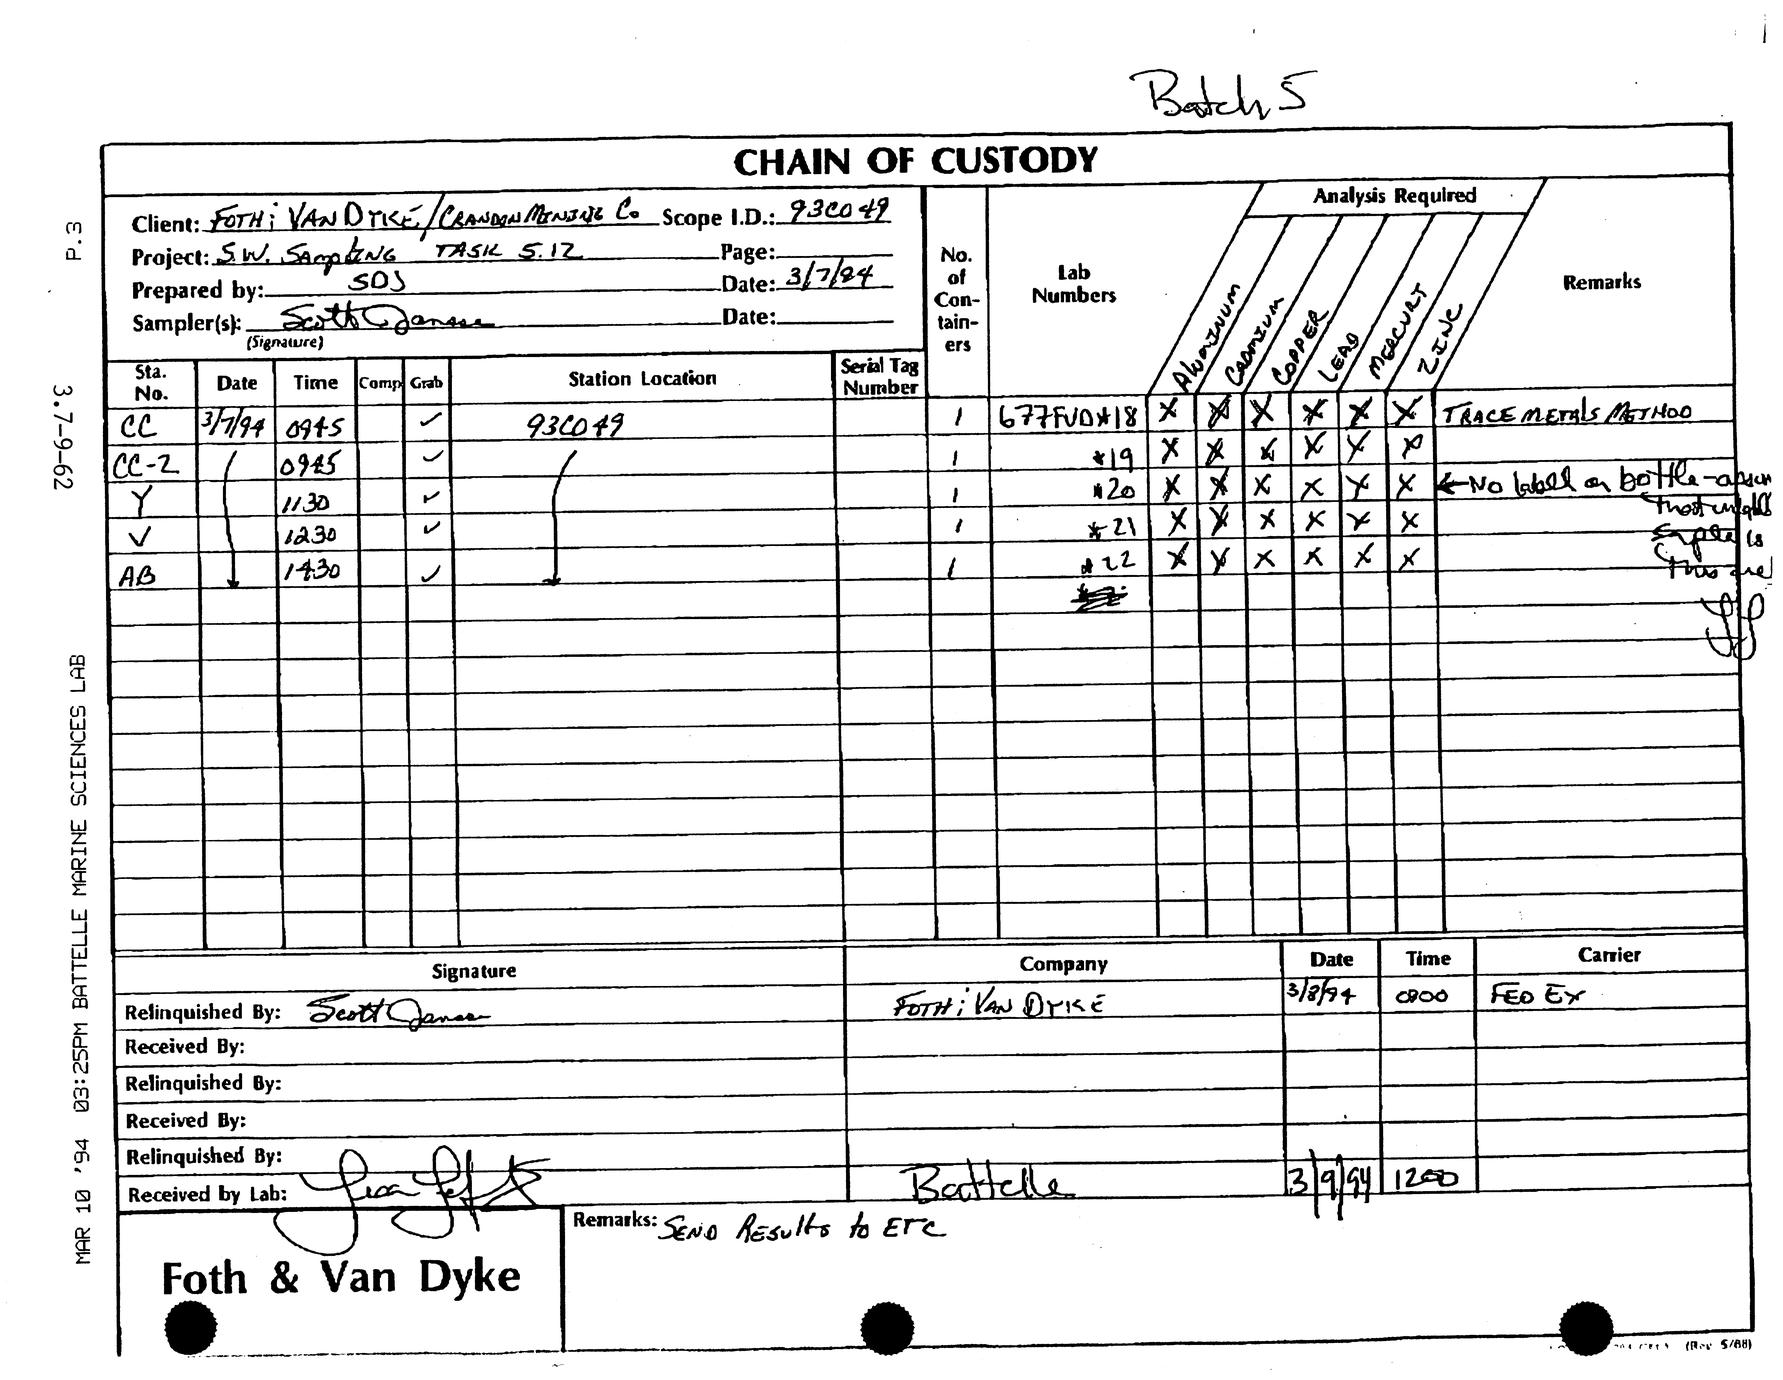 Batch 5
CHAIN OF CUSTODY
Client: FOTH & VAN DYKE/CRANDON MINING CO Scope I.D.: 93C049
Project: S.W. SAMPLING TASK 5.12 Page:
Prepared by: SDJ Date: 3/7/94
Sampler(s): Scott Janssen Date:
(Signature)
No. of Con- tain- ers
Lab Numbers
Analysis Required
ALUMINUM CADMIUM COPPER LEAD MERCURY ZINC
Remarks
Sta. No. Date Time Comp Grab Station Location Serial Tag Number
CC 3/7/94 0945 ✓ 93C049 1 677FVD*18 X X X X X X TRACE METALS METHOD
CC-2 0945 ✓ 1 *19 X X X X X X
Y 1130 ✓ 1 *20 X X X X X X ←No label on bottle-
V 1230 ✓ 1 *21 X X X X X X
sample is
AB 1430 ✓ 1 *22 X X X X X X
this
Signature Company Date Time Carrier
Relinquished By: Scott Janssen FOTH & VAN DYKE 3/8/94 0800 FED EX
Received By:
Relinquished By:
Received By:
Relinquished By:
Received by Lab: Battelle 3/9/94 1200
Remarks: SEND RESULTS to ETC
Foth & Van Dyke
(Rev 5/88)
MAR 10 '94 03:25PM BATTELLE MARINE SCIENCES LAB 3.7-9-62 P.3